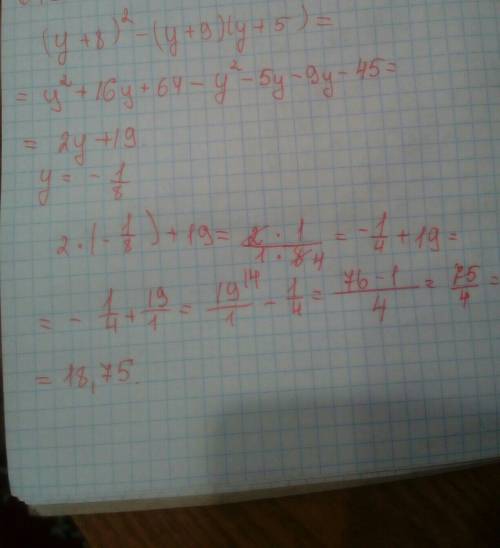 (y + 8)² - (y + 9)(y + 5) =
= y² + 16y + 64 - y² - 5y - 9y - 45 =
= 2y + 19
y = - 1/8
2 · (- 1/8) + 19 = (2 · 1)/(1 · 8 4) = - 1/4 + 19 =
= - 1/4 + 19/1 = 19/1 ^14 - 1/4 = (76 - 1)/4 = 75/4 =
= 18,75.